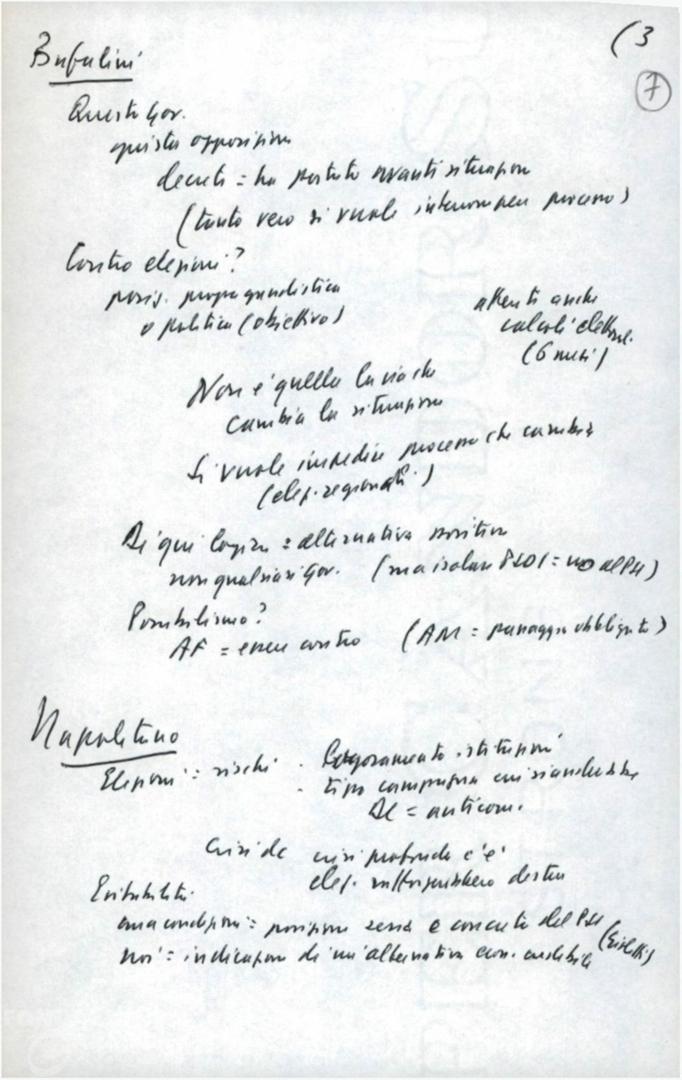 (3
7
Bufalini
Questo Gov.
questa opposizione
decreti = ha portato avanti situazione
(tanto vero si vuole interrompere processo)
Contro elezioni?
posiz. propagandistica
o politica (obiettivo)
attenti anche
calcoli elettorali.
(6 mesi)
Non è quella la via che
cambia la situazione
Si vuole impedire processo che cambia
(elez. regionali)
Di qui logica = alternativa positiva
non qualsiasi Gov. (ma isolare PSDI = no al PSI)
Possibilismo?
AF = essere contro (AM = passaggio obbligato)
Napolitano
Elezioni = rischi - Logoramento istituzioni
- tipo campagna
DC = anticom.
Crisi dc crisi profonda c'è
elez. destra
Evitabilità
una condizione = posizione seria e concreta del PSI
noi = indicazione di un'alternativa credibile